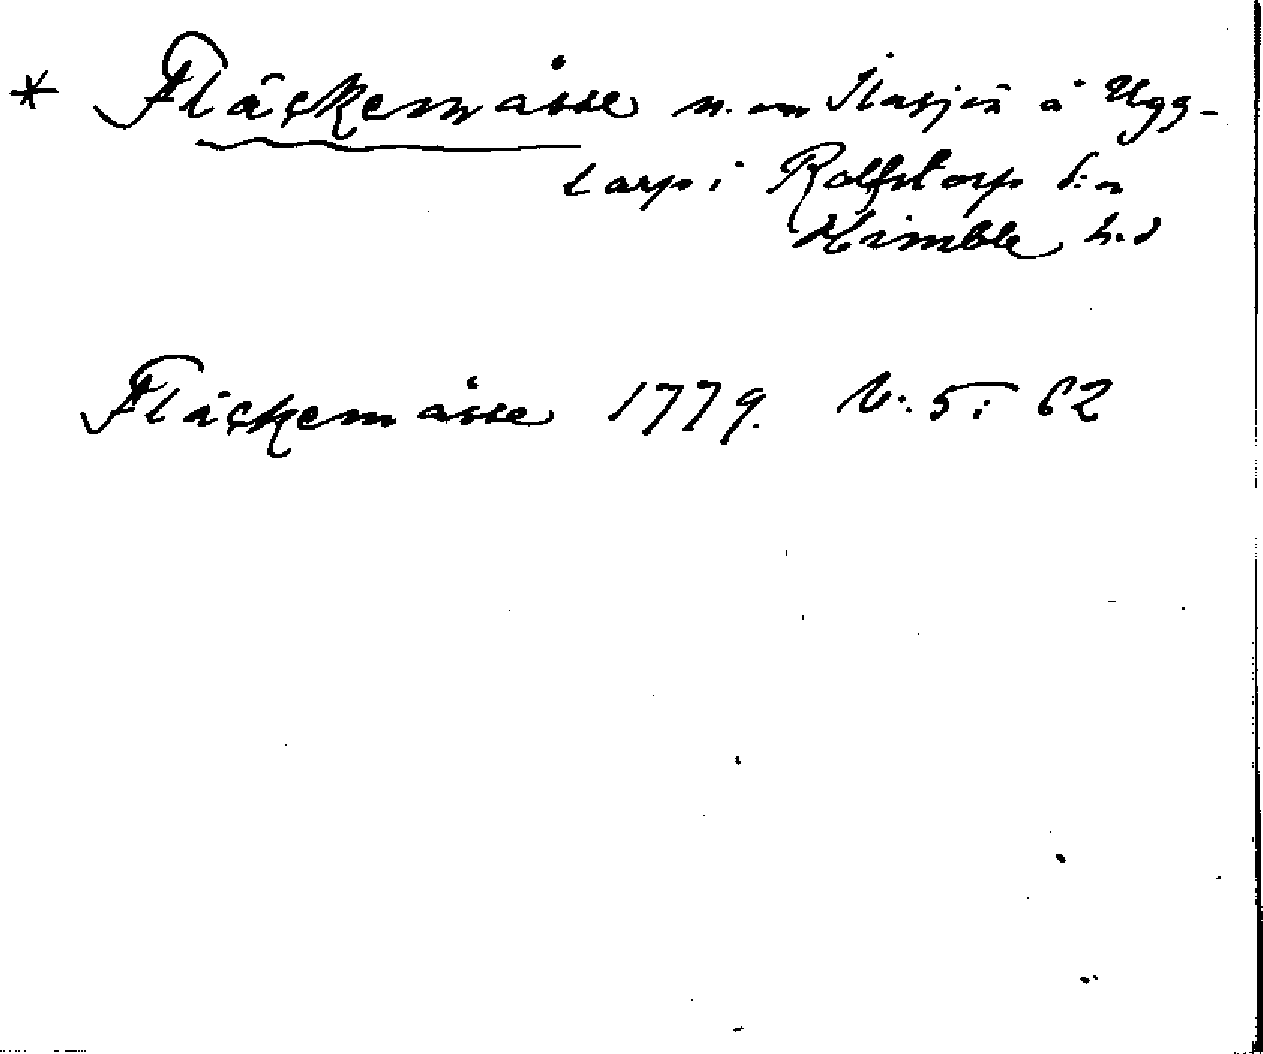 * Fläckemåsse n. om Stasjön å Ugg-
tarp i Rolfstorp s:n
Himble h.d
Fläckemåsse 1779. V:. 5: 62